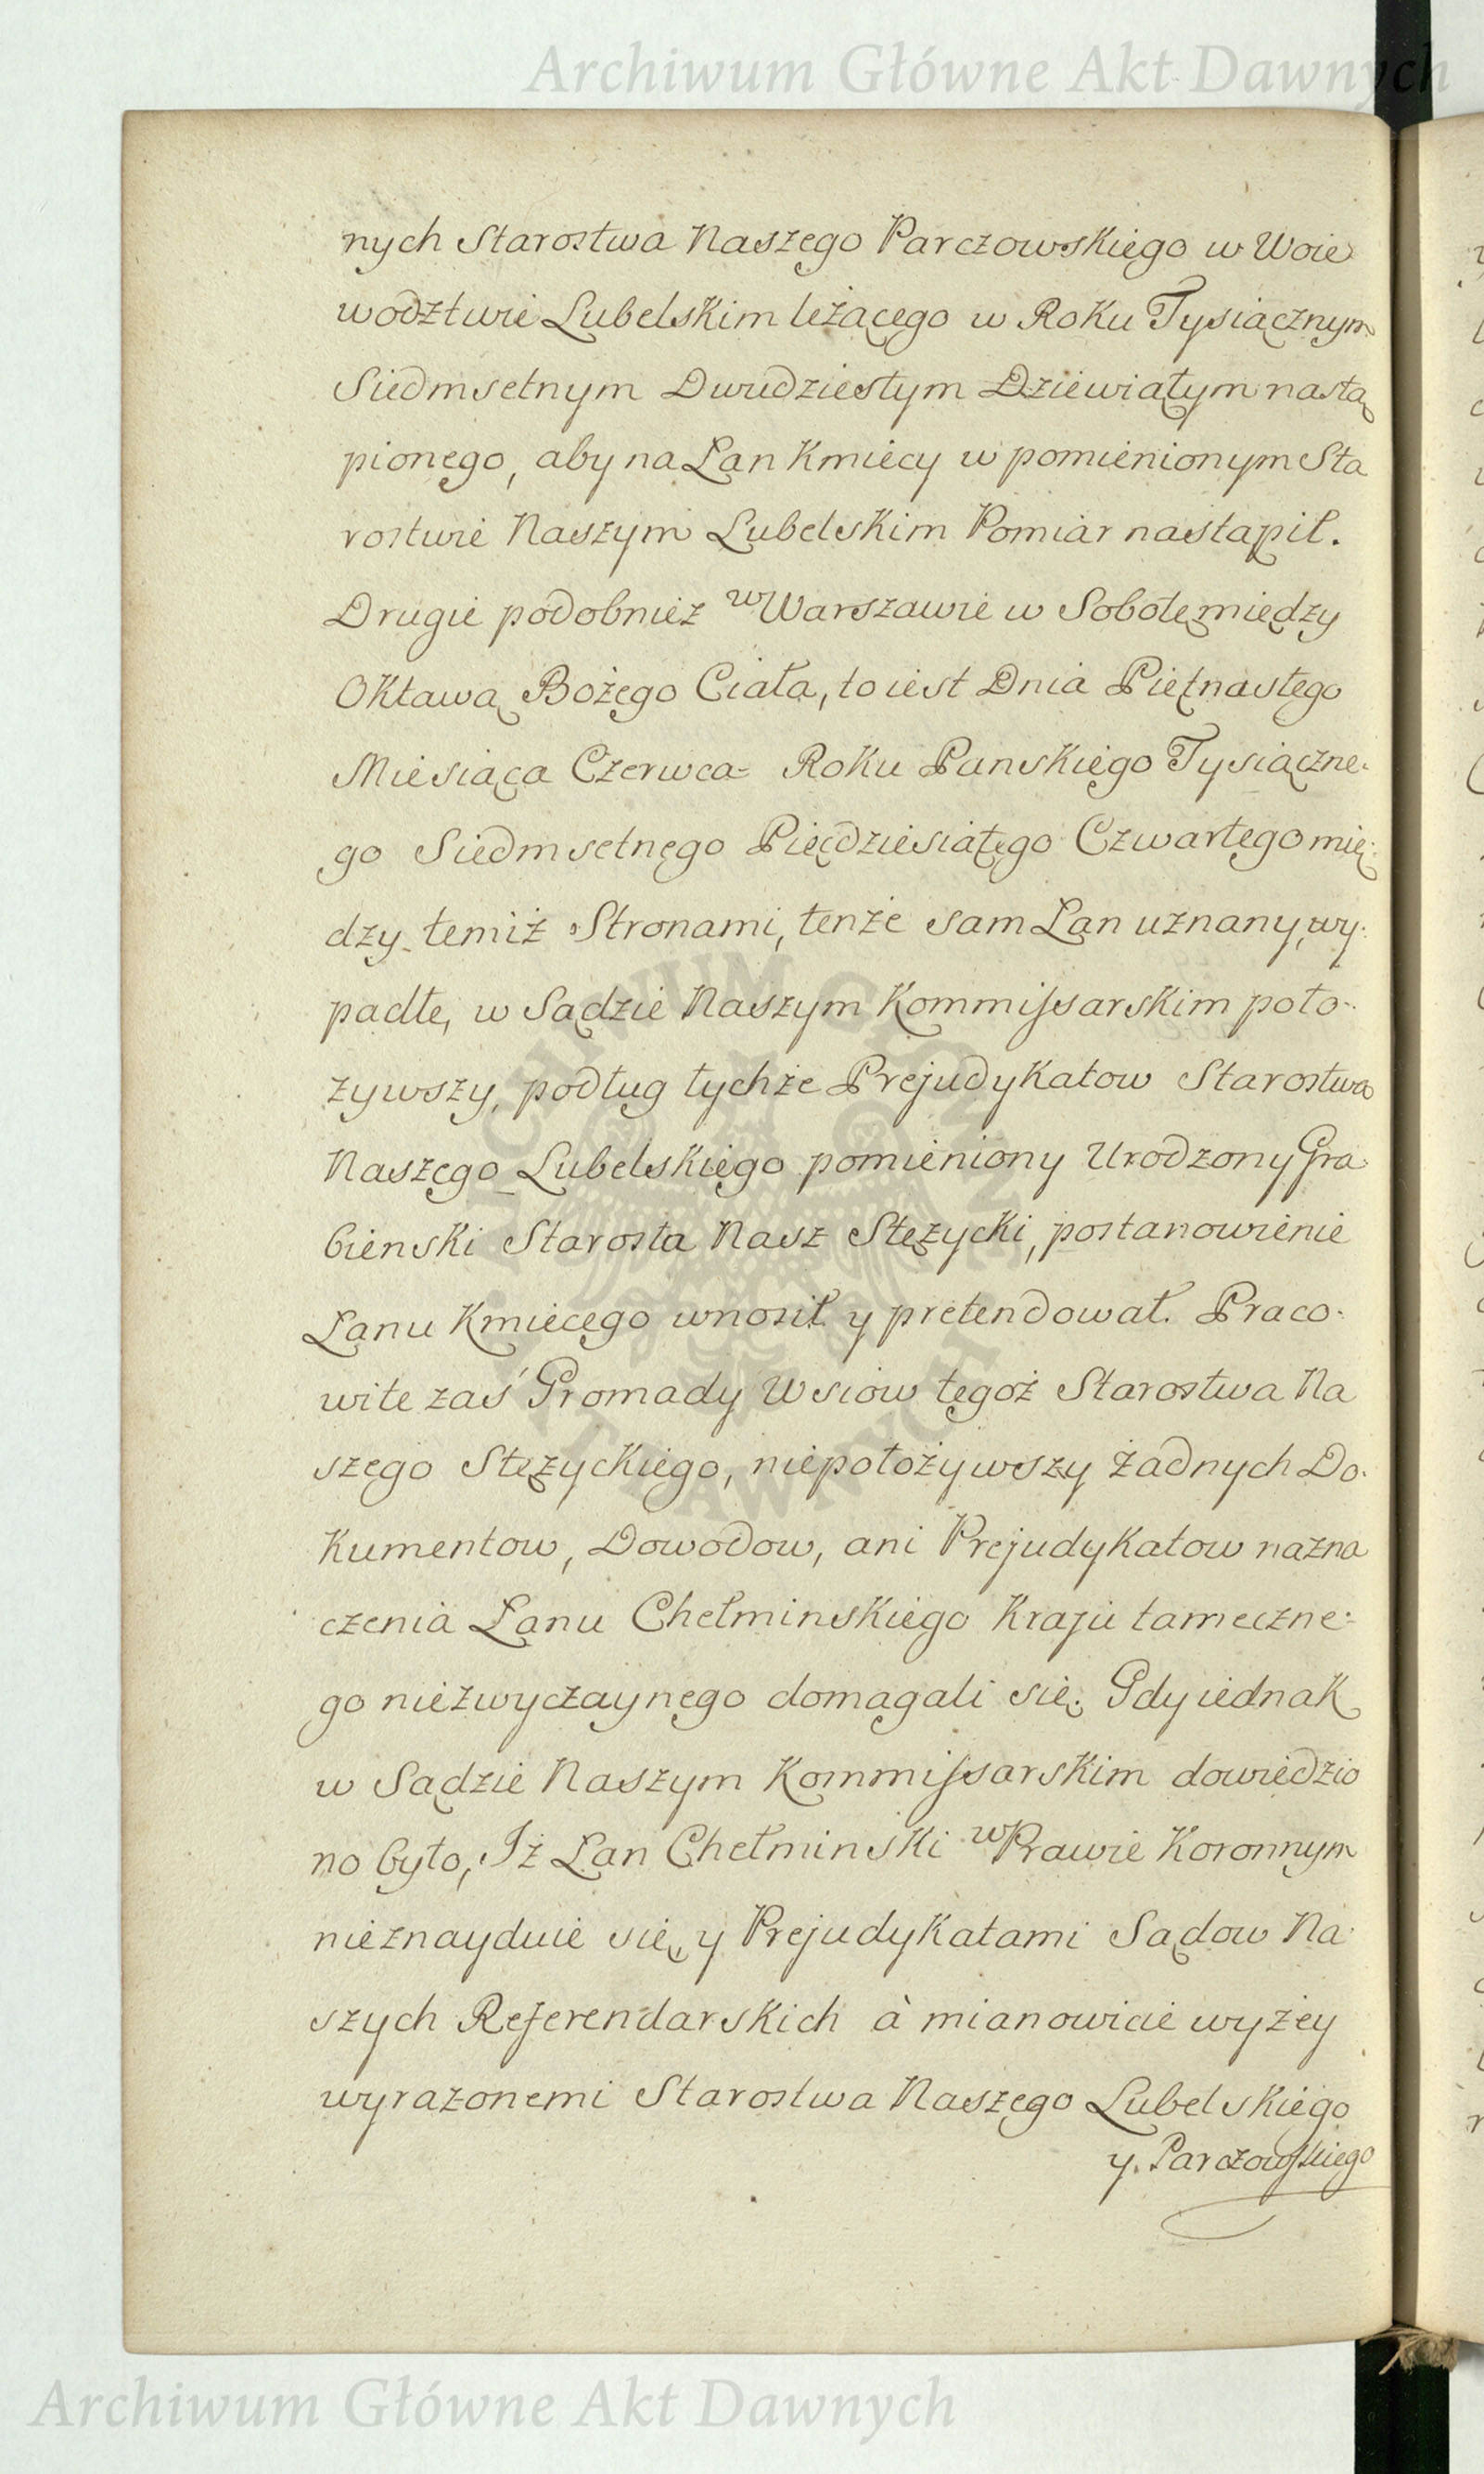 Archiwum Główne Akt Dawnych
nych Starostwa Naszego Parczowskiego w Woie
wodztwie Lubelskim leżącego w Roku Tysiącznym
Siedmsetnym Dwudziestym Dziewiątym nastą
pionego, aby na Łan Kmiecy w pomienionym Sta
rostwie Naszym Lubelskim Pomiar nastąpił.
Drugie podobnież w Warszawie w Sobotę między
Oktawą Bożego Ciała, to iest Dnia Piętnastego
Miesiąca Czerwca Roku Panskiego Tysiączne-
go Siedmsetnego Pięćdziesiątego Czwartego mię-
dzy temiż Stronami, tenże sam Łan uznany, wy-
padłe, w Sądzie Naszym Kommissarskim poło-
żywszy, podług tychże Prejudykatow Starostwa
Naszego Lubelskiego pomieniony Urodzony Gra-
bienski Starosta Nasz Stężycki, postanowienie
Łanu Kmiecego wnosił y pretendował. Praco-
wite zaś Gromady Wsiow tegoż Starostwa Na
szego Stężyckiego, niepołożywszy żadnych Do-
kumentow, Dowodow, ani Prejudykatow nazna
czenia Łanu Chełminskiego Kraju tameczne-
go niezwyczaynego domagali się. Gdy iednak
w Sądzie Naszym Kommissarskim dowiedzio
no było, Iż Łan Chełminski w Prawie Koronnym
nieznayduie się, y Prejudykatami Sądow Na-
szych Referendarskich à mianowicie wyżey
wyrażonemi Starostwa Naszego Lubelskiego
y. Parczowskiego
Archiwum Główne Akt Dawnych